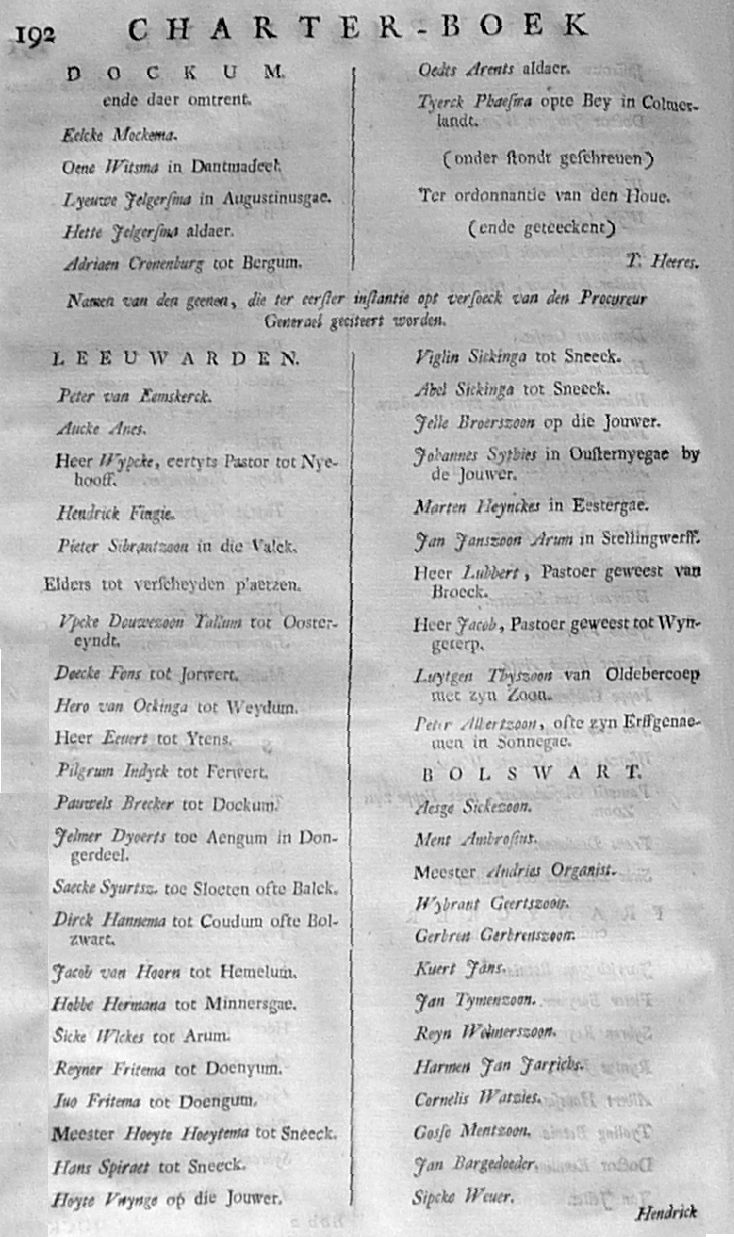 192 CHARTER-BOEK
DOCKUM.
ende daer omtrent.
Eelcke Mockema.
Oene Witsma in Dantmadeel.
Lyeuwe Jelgersma in Augustinusgae.
Hette Jelgersma aldaer.
Adriaen Cronenburg tot Bergum.
Oedts Arents aldaer.
Tyerck Phaesma opte Bey in Colmer-
landt.
(onder stondt geschreuen)
Ter ordonnantie van den Houe.
(ende geteeckent)
T. Heeres.
Namen van den geenen, die ter eerster instantie opt versoeck van den Procureur
Generael geciteert worden.
LEEUWARDEN.
Peter van Eemskerck.
Aucke Anes.
Heer Wypcke, eertyts Pastor tot Nye-
hooff.
Hendrick Fingie.
Pieter Sibrantzoon in die Valck.
Elders tot verscheyden plaetzen.
Vpcke Douwezoon Talium tot Ooster-
eyndt.
Doecke Fons tot Jorwert.
Hero van Ockinga tot Weydum.
Heer Eeuert tot Ytens.
Pilgrum Indyck tot Ferwert.
Pauwels Brecker tot Dockum.
Jelmer Dyoerts toe Aengum in Don-
gerdeel.
Saecke Syurtsz. toe Sloeten ofte Balck.
Dirck Hannema tot Coudum ofte Bol-
zwart.
Jacob van Hoorn tot Hemelum.
Hobbe Hermana tot Minnersgae.
Sicke Wlckes tot Arum.
Reyner Fritema tot Doenyum.
Iuo Fritema tot Doengum.
Meester Hoeyte Hoeytema tot Sneeck.
Hans Spiraet tot Sneeck.
Hoyte Vnynge op die Jouwer.
Viglin Sickinga tot Sneeck.
Abel Sickinga tot Sneeck.
Jelle Broerszoon op die Jouwer.
Johannes Sytbies in Ousternyegae by
de Jouwer.
Marten Heynckes in Eestergae.
Jan Janszoon Arum in Stellingwerff.
Heer Lubbert, Pastoer geweest van
Broeck.
Heer Jacob, Pastoer geweest tot Wyn-
geterp.
Luytgen Thyszoon van Oldebercoep
met zyn Zoon.
Peter Albertzoon, ofte zyn Erffgenae-
men in Sonnegae.
BOLSWART.
Aesge Sickezoon.
Ment Ambrosius.
Meester Andries Organist.
Wybrant Geertszoon.
Gerbren Gerbrenszoon.
Kuert Jans.
Jan Tymenzoon.
Reyn Wolmerszoon.
Harmen Jan Jarrichs.
Cornelis Watzies.
Gosse Mentzoon.
Jan Bargedoeder.
Sipcke Weuer.
Hendrick